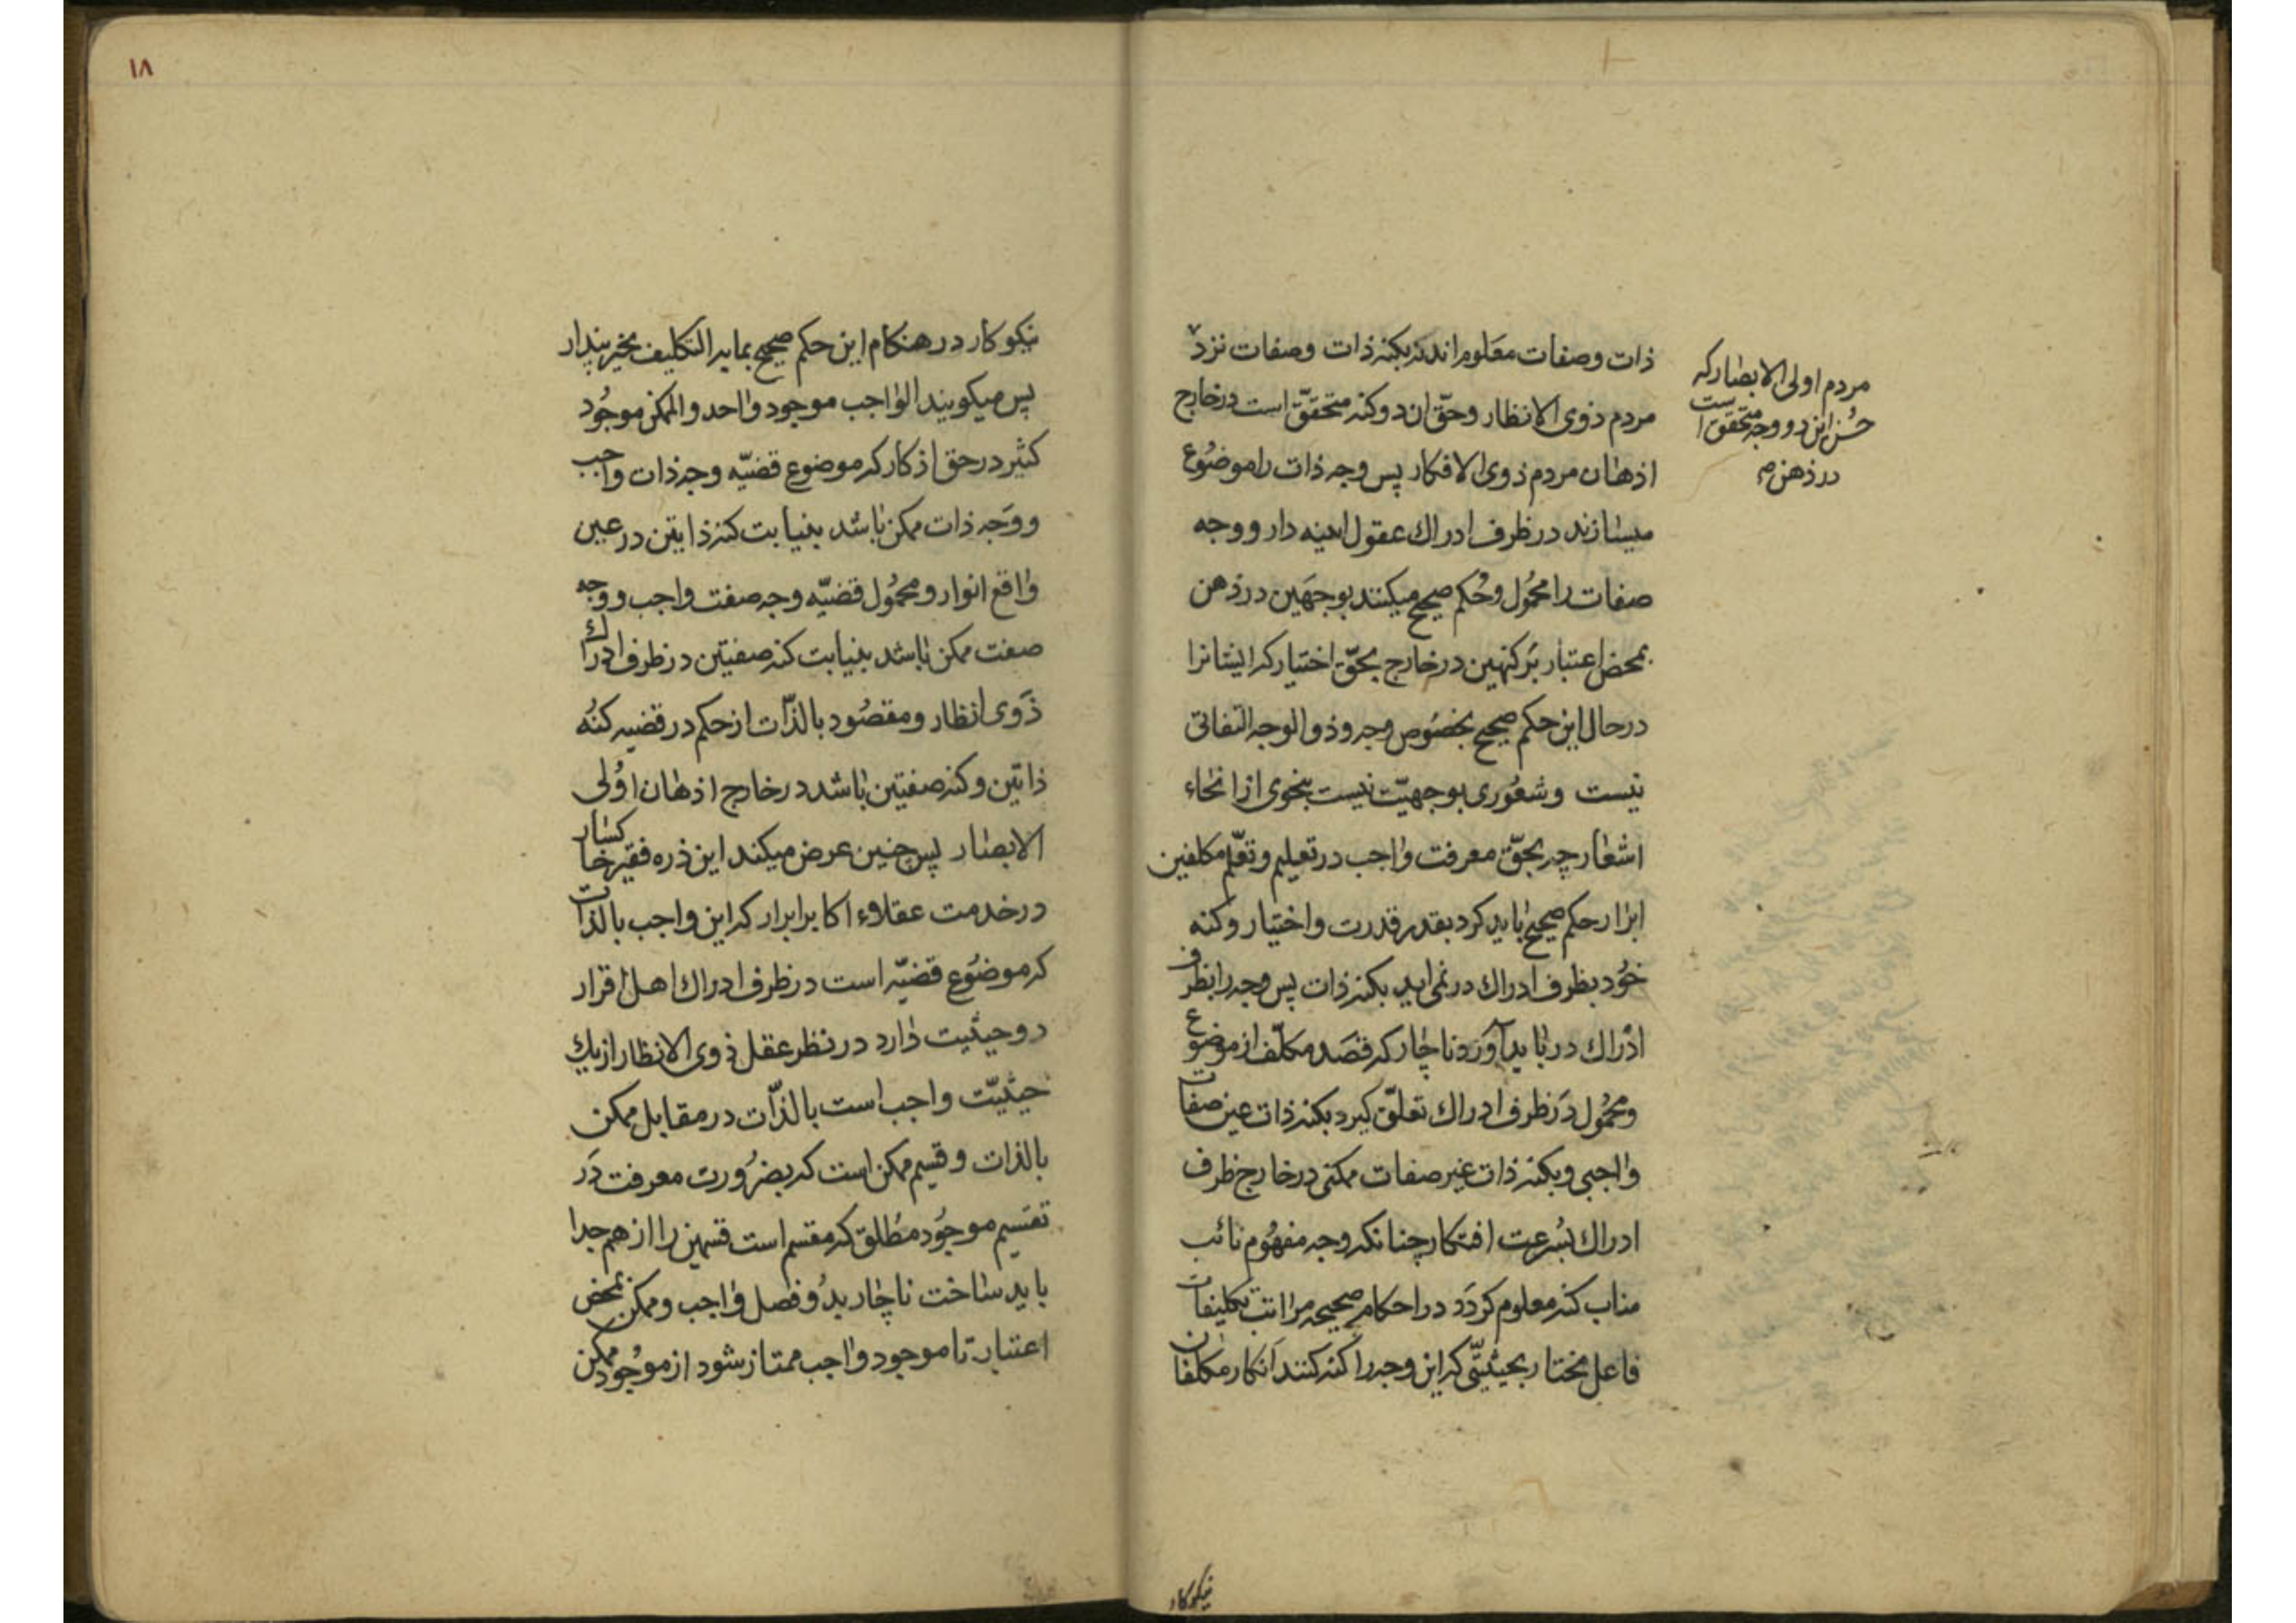 ذات وصفات معلوم اندنه بکنه ذات وصفات نزد
مردم ذوی الانظار وحق ان دو کنه متحقق است در خارج
اذهان مردم ذوی الافکار پس وجه ذات را موضوع
میسازند در ظرف ادراك عقول دار و وجه
صفات را محمول وحکم صحیح میکنند بوجهین در ذهن
بمحض اعتبار بر کنهین در خارج بحق اختیار که ایشانرا
در حال این حکم صحیح بخصوص وجه وذو الوجه التفاتی
نیست وشعوری بوجهیت نیست بنحوی از انحاء
اشعار چه بحق معرفت واجب در تعلیم وتعلم مکلفین
ابرار حکم صحیح باید کرد بقدر قدرت واختیار وکنه
خود بظرف ادراك در نمی اید بکنه ذات پس وجه را بظرف
ادراك در باید آورد ناچار که قصد مکلف از موضوع
ومحمول در ظرف ادراك تعلق کیرد بکنه ذات عین صفات
واجبی وبکنه ذات غیر صفات ممکنی در خارج ظرف
ادراك بسرعت افتکار چنانکه وجه مفهوم نائب
مناب کنه معلوم کردد در احکام صحیحه مراتب تکلیفات
فاعل مختار بحیثیتی که این وجه را کنه کنند انکار مکلفان
مردم اولی الابصار که
حسن این دو وجه متحقق است
در ذهن
نیکوکار
١٨
نیکوکار در هنکام این حکم صحیح بمابه التکلیف بخیر پندار
پس میکویند الواجب موجود واحد والممکن موجود
کثیر در حق اذکار که موضوع قضیه وجه ذات واجب
ووجه ذات ممکن باشد بنیابت کنه ذاتین در عین
واقع انوار ومحمول قضیه وجه صفت واجب ووجه
صفت ممکن باشد بنیابت کنه صفتین در ظرف ادراك
ذوی انظار ومقصود بالذات از حکم در قضیه کنه
ذاتین وکنه صفتین باشد در خارج اذهان اولی
الابصار پس چنین عرض میکند این ذره فقیر خاکسار
در خدمت عقلاء اکابر ابرار که این واجب بالذات
که موضوع قضیه است در ظرف ادراك اهل اقرار
دو حیثیت دارد در نظر عقل ذوی الانظار از یك
حیثیت واجب است بالذات در مقابل ممکن
بالذات وقسیم ممکن است که بضرورت معرفت در
تقسیم موجود مطلق که مقسم است قسمین را از هم جدا
باید ساخت ناچار بدو فصل واجب وممکن بمحض
اعتبار تا موجود واجب ممتاز شود از موجود ممکن